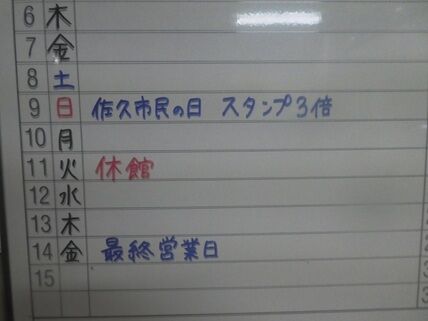 6 木
7 金
8 土
9 日 佐久市民の日 スタンプ3倍
10 月
11 火 休館
12 水
13 木
14 金 最終営業日
15